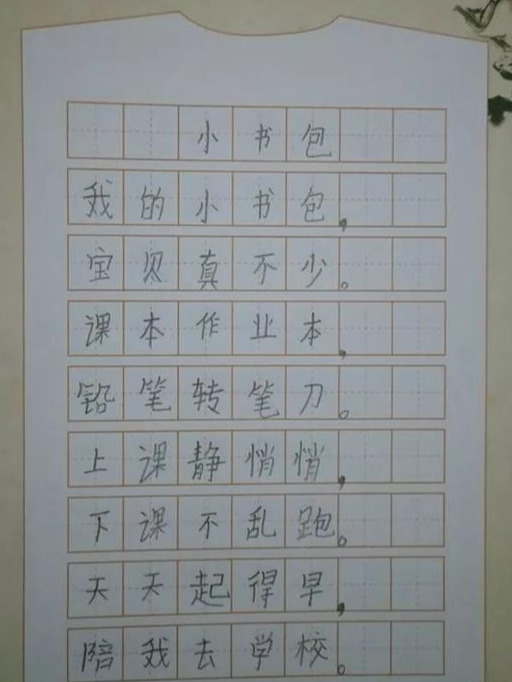 小书包
我的小书包,
宝贝真不少。
课本作业本,
铅笔转笔刀。
上课静悄悄,
下课不乱跑。
天天起得早,
陪我去学校。